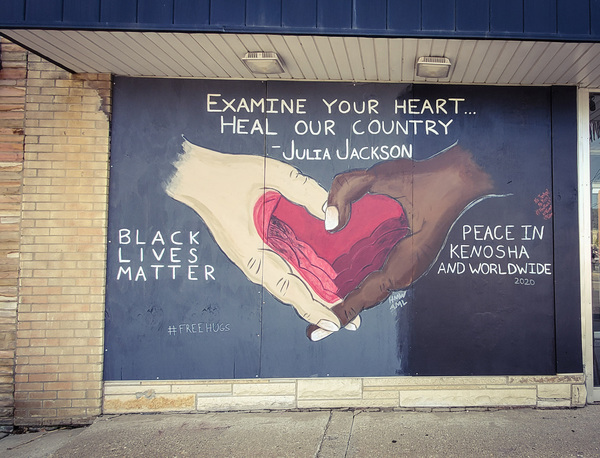 EXAMINE YOUR HEART...
HEAL OUR COUNTRY
-JULIA JACKSON
BLACK
LIVES
MATTER
PEACE IN
KENOSHA
AND WORLDWIDE
2020
#FREEHUGS